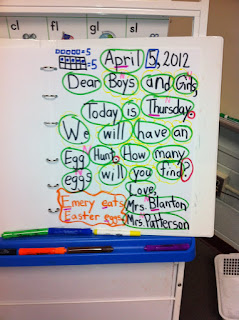 cl fl gl sl
=5
=5
April 5, 2012
Dear Boys and Girls,
Today is Thursday.
We will have an
Egg Hunt. How many
eggs will you find?
Love,
Emery eats
Mrs. Blanton
Easter eggs
Mrs. Patterson